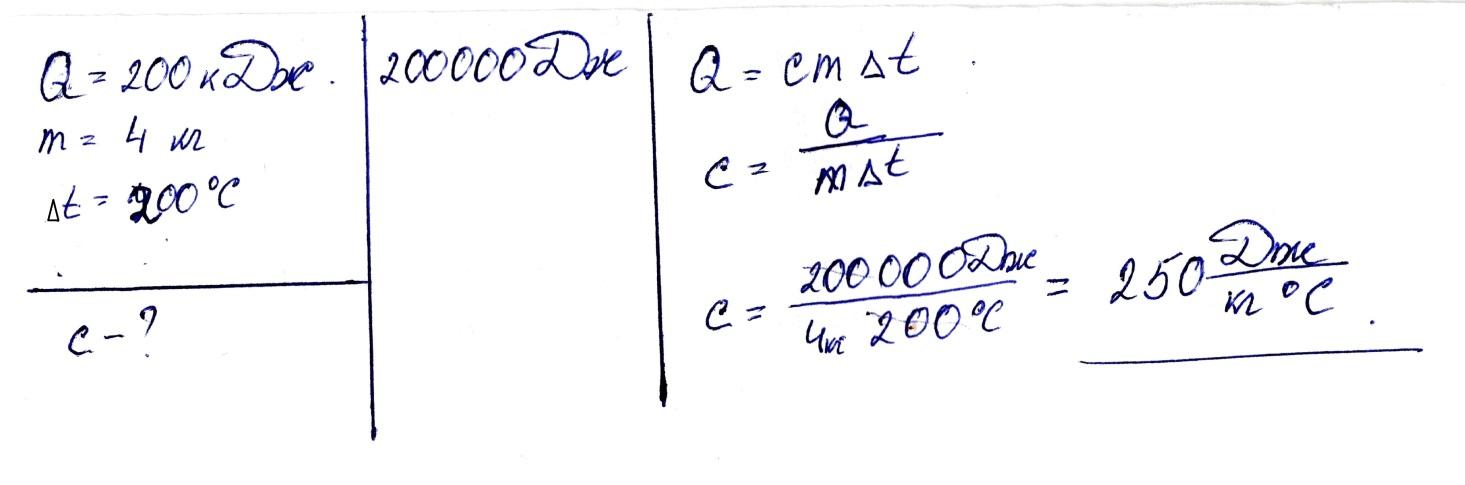 Q = 200 кДж.
m = 4 кг
Δt = 200°C
c - ?
200000 Дж
Q = cmΔt
c = Q / mΔt
c = 200000Дж / 4кг 200°C = 250 Дж / кг °C.